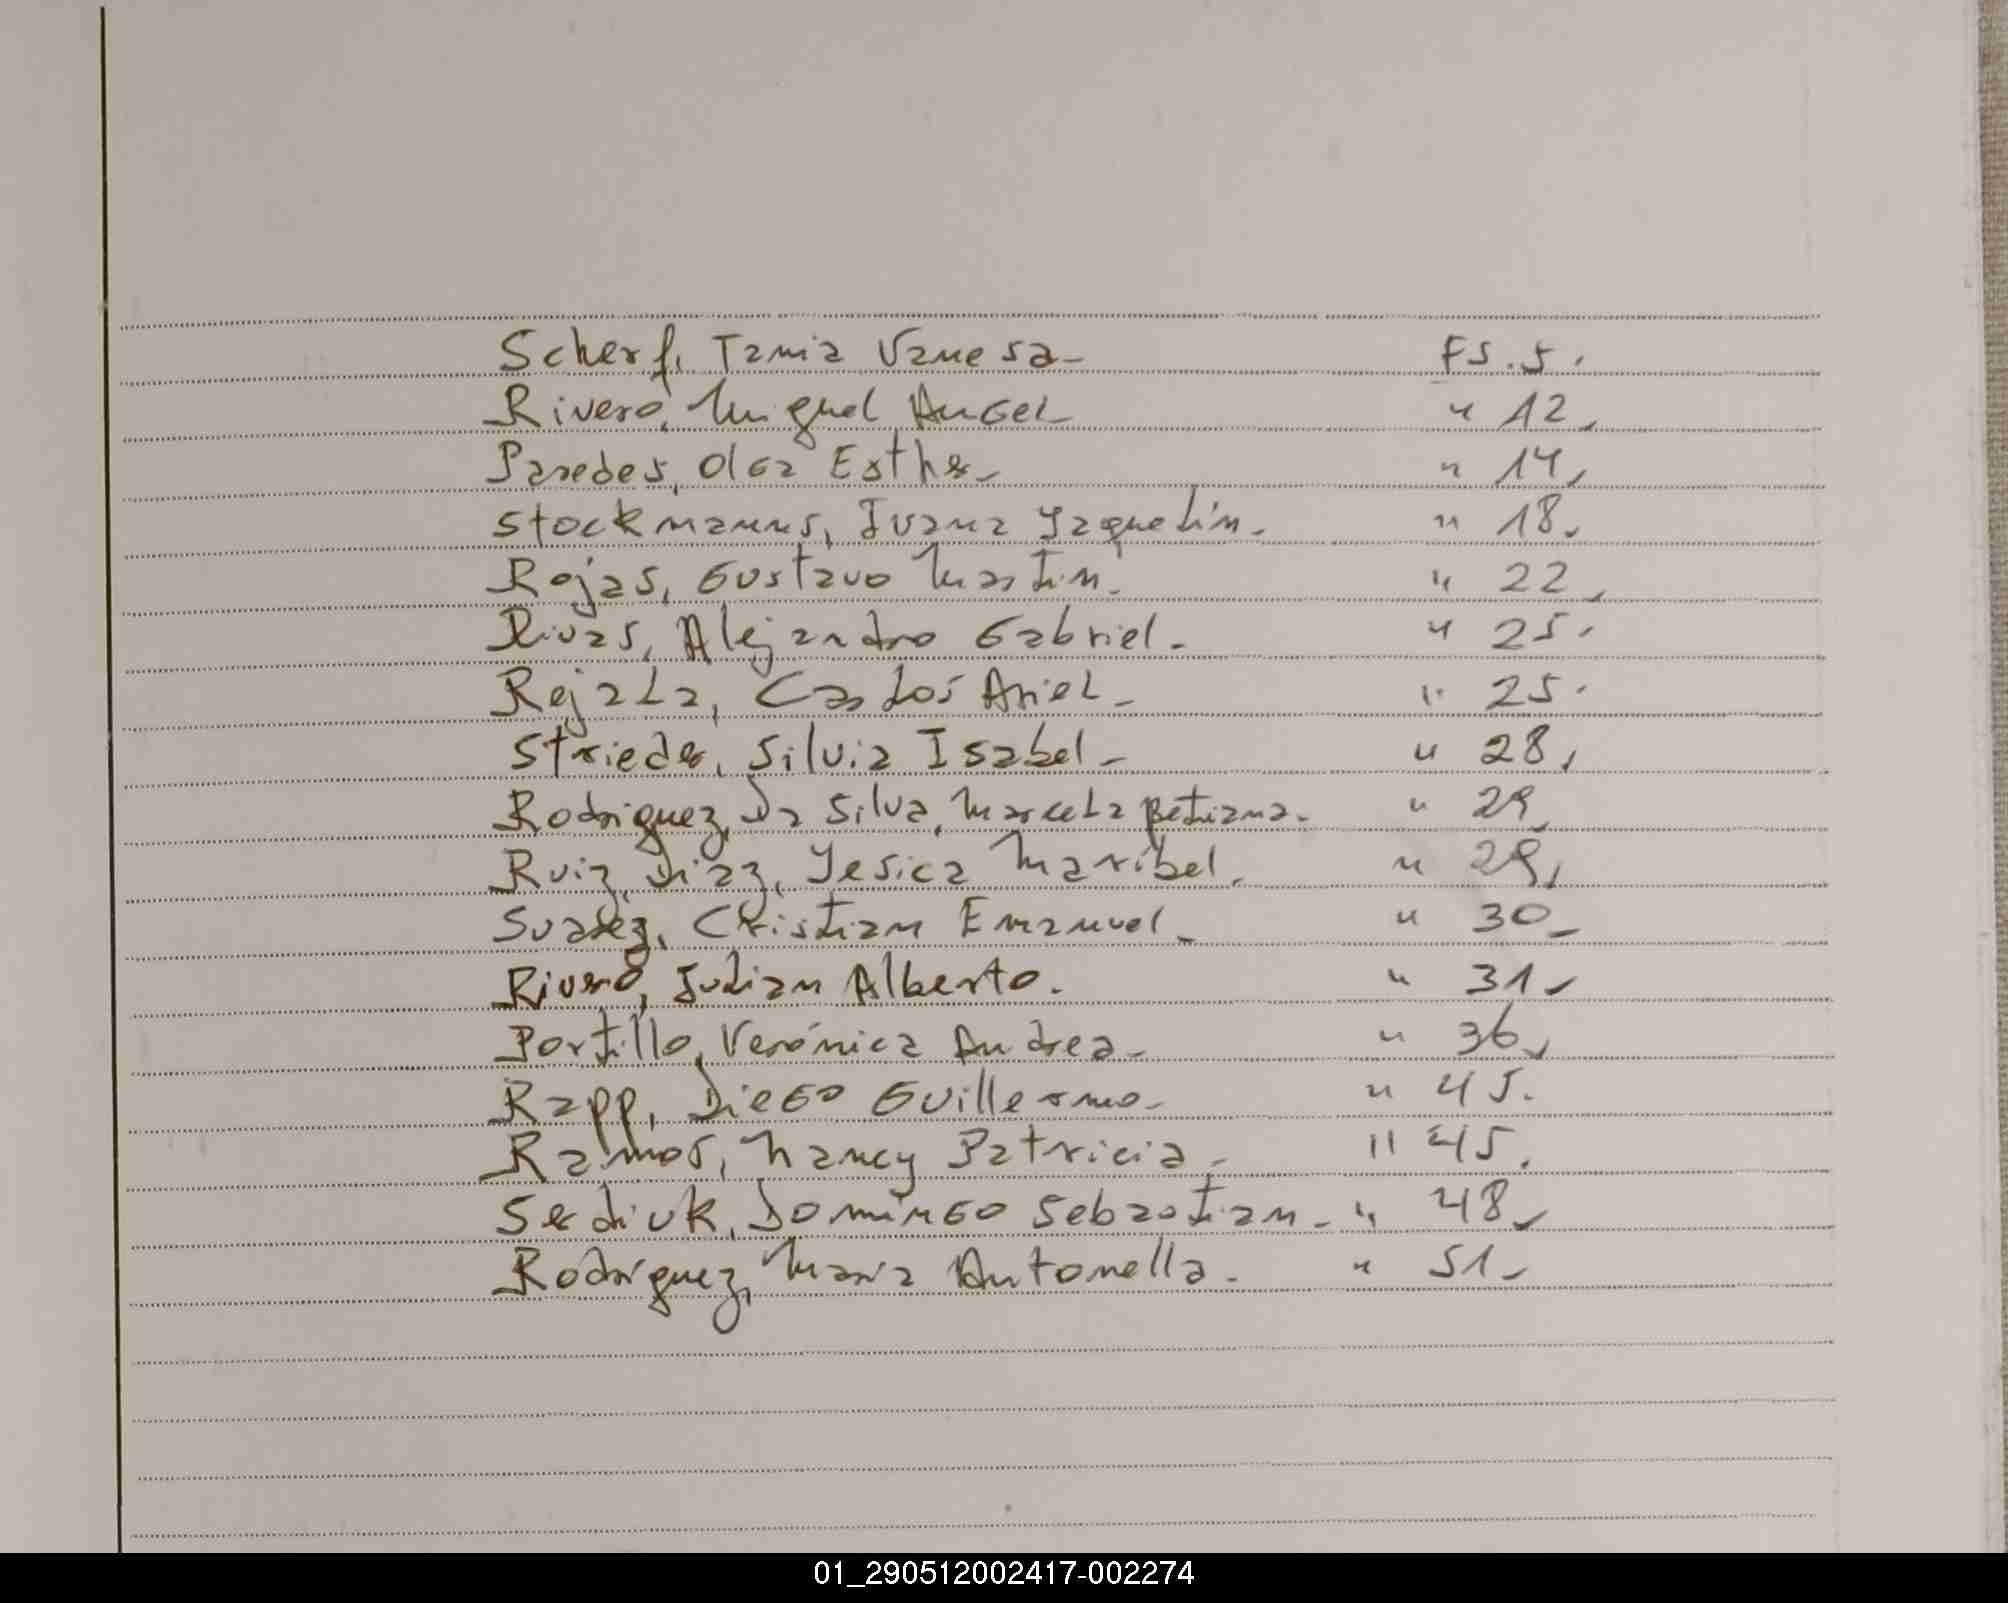 Scherf, Tania Vanesa- FS. 5.
Rivero, Miguel Angel " 12.
Paredes, Olga Esther- " 14.
Stockmanns, Ivana Yaquelin. " 18.
Rojas, Gustavo Martin. " 22.
Rivas, Alejandro Gabriel. " 25.
Rejala, Carlos Ariel- " 25.
Strieder, Silvia Isabel- " 28.
Rodriguez, Da Silva, Marcela Betiana. " 29.
Ruiz, Diaz, Yesica Maribel. " 29.
Suarez, Christian Emanuel- " 30-
Rivero, Julian Alberto. " 31-
Portillo, Verónica Andrea- " 36.
Rapp, Diego Guillermo- " 45.
Ramos, Nancy Patricia- " 45.
Serdiuk, Domingo Sebastian- " 48-
Rodriguez, Maria Antonella- " 51-
01_290512002417-002274